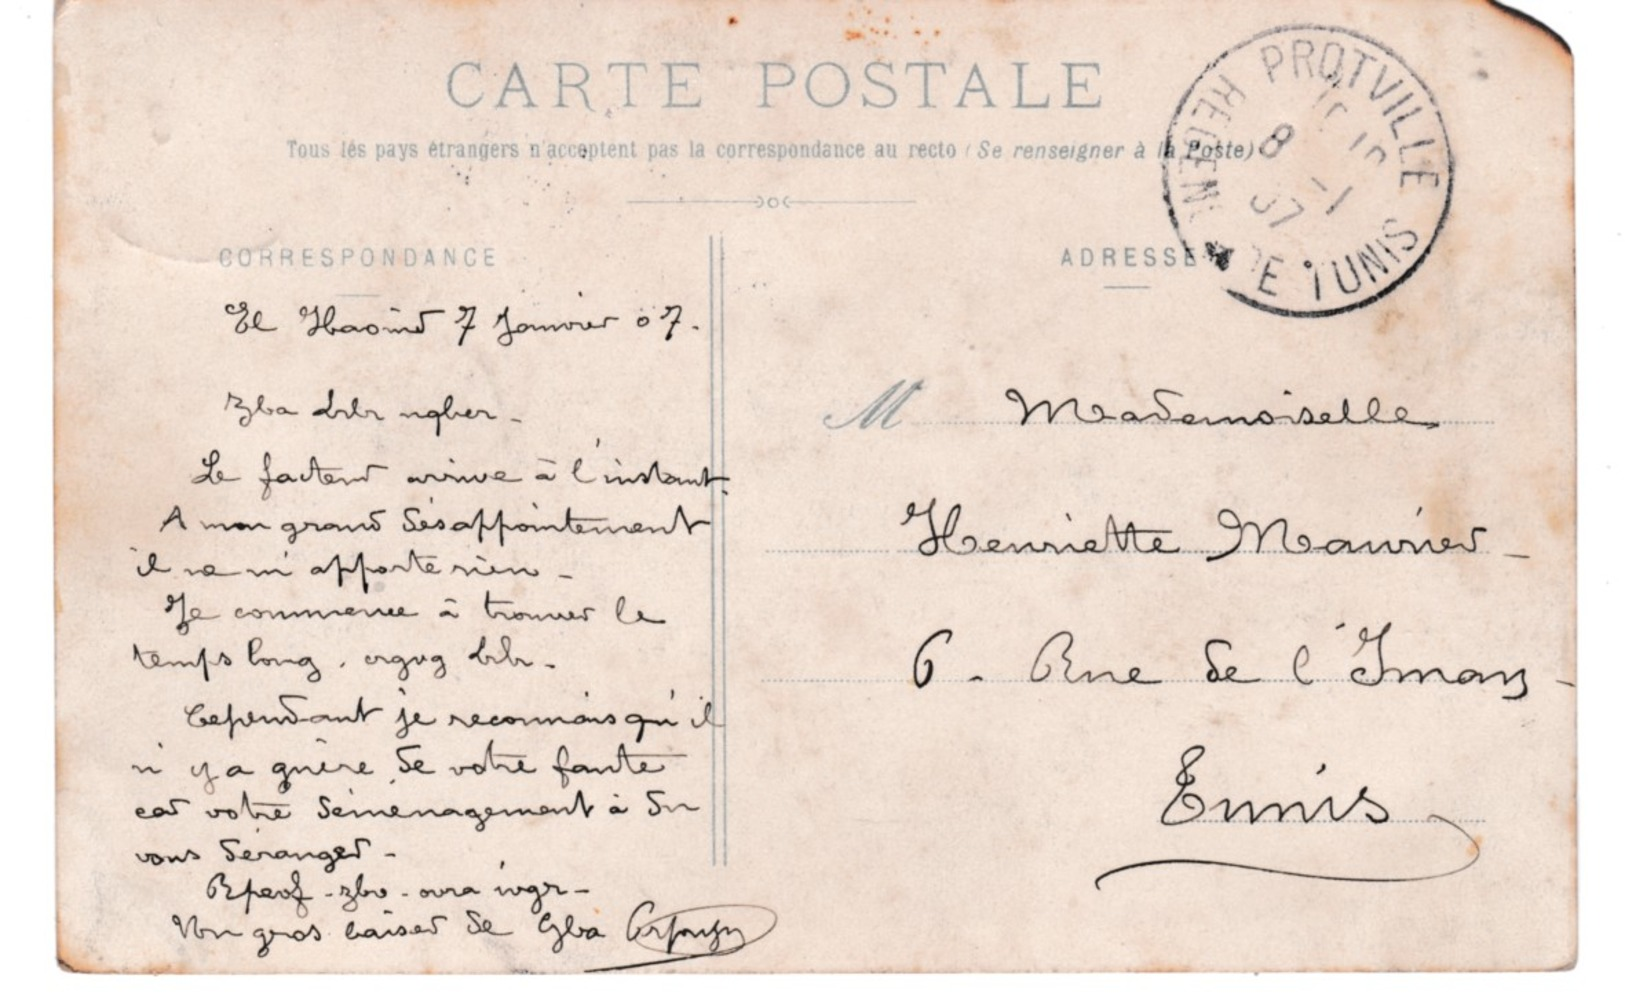 CARTE POSTALE
Tous les pays étrangers n'acceptent pas la correspondance au recto (Se renseigner à la Poste)
PROTVILLE
REGENCE DE TUNIS
8 -1
07
CORRESPONDANCE
El Haouid 7 Janvier 07.
Zba drbr nqber -
Le facteur arrive à l'instant.
A mon grand désappointement
il ne m'apporte rien -
Je commence à trouver le
temps long. crgvg drbr -
Cependant je reconnais qu'il
n'y a guère de votre faute
car votre déménagement à du
vous déranger -
Rpevf - zbv - ovra ivgr -
Un gros baiser de Gba
ADRESSE
M Mademoiselle
Henriette Maurier -
6 - Rue de l'Iman -
Tunis